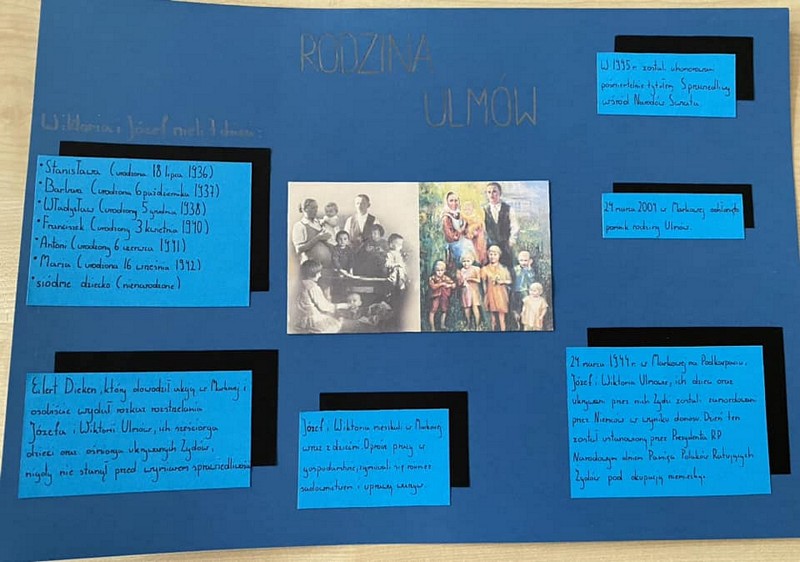 RODZINA
ULMÓW
Wiktoria i Józef mieli 7 dzieci:
• Stanisława (urodzona 18 lipca 1936)
• Barbara (urodzona 6 października 1937)
• Władysław (urodzony 5 grudnia 1938)
• Franciszek (urodzony 3 kwietnia 1940)
• Antoni (urodzony 6 czerwca 1941)
• Maria (urodzona 16 września 1942)
• siódme dziecko (nienarodzone)
Eilert Dieken, który dowodził akcją w Markowej i
osobiście wydał rozkaz rozstrzelania
Józefa i Wiktorii Ulmów, ich sześciorga
dzieci oraz ośmiorga ukrywanych Żydów,
nigdy nie stanął przed wymiarem sprawiedliwości
Józef i Wiktoria mieszkali w Markowej
wraz z dziećmi. Oprócz pracy w
gospodarstwie, zajmowali się również
sadownictwem i uprawą warzyw.
W 1995 r. zostali uhonorowani
pośmiertnie tytułem Sprawiedliwy
wśród Narodów Świata.
24 marca 2004 w Markowej odsłonięto
pomnik rodziny Ulmów.
24 marca 1944 r. w Markowej na Podkarpaciu,
Józef i Wiktoria Ulmowie, ich dzieci oraz
ukrywani przez nich Żydzi zostali zamordowani
przez Niemców w wyniku donosu. Dzień ten
został ustanowiony przez Prezydenta RP
Narodowym dniem Pamięci Polaków Ratujących
Żydów pod okupacją niemiecką.